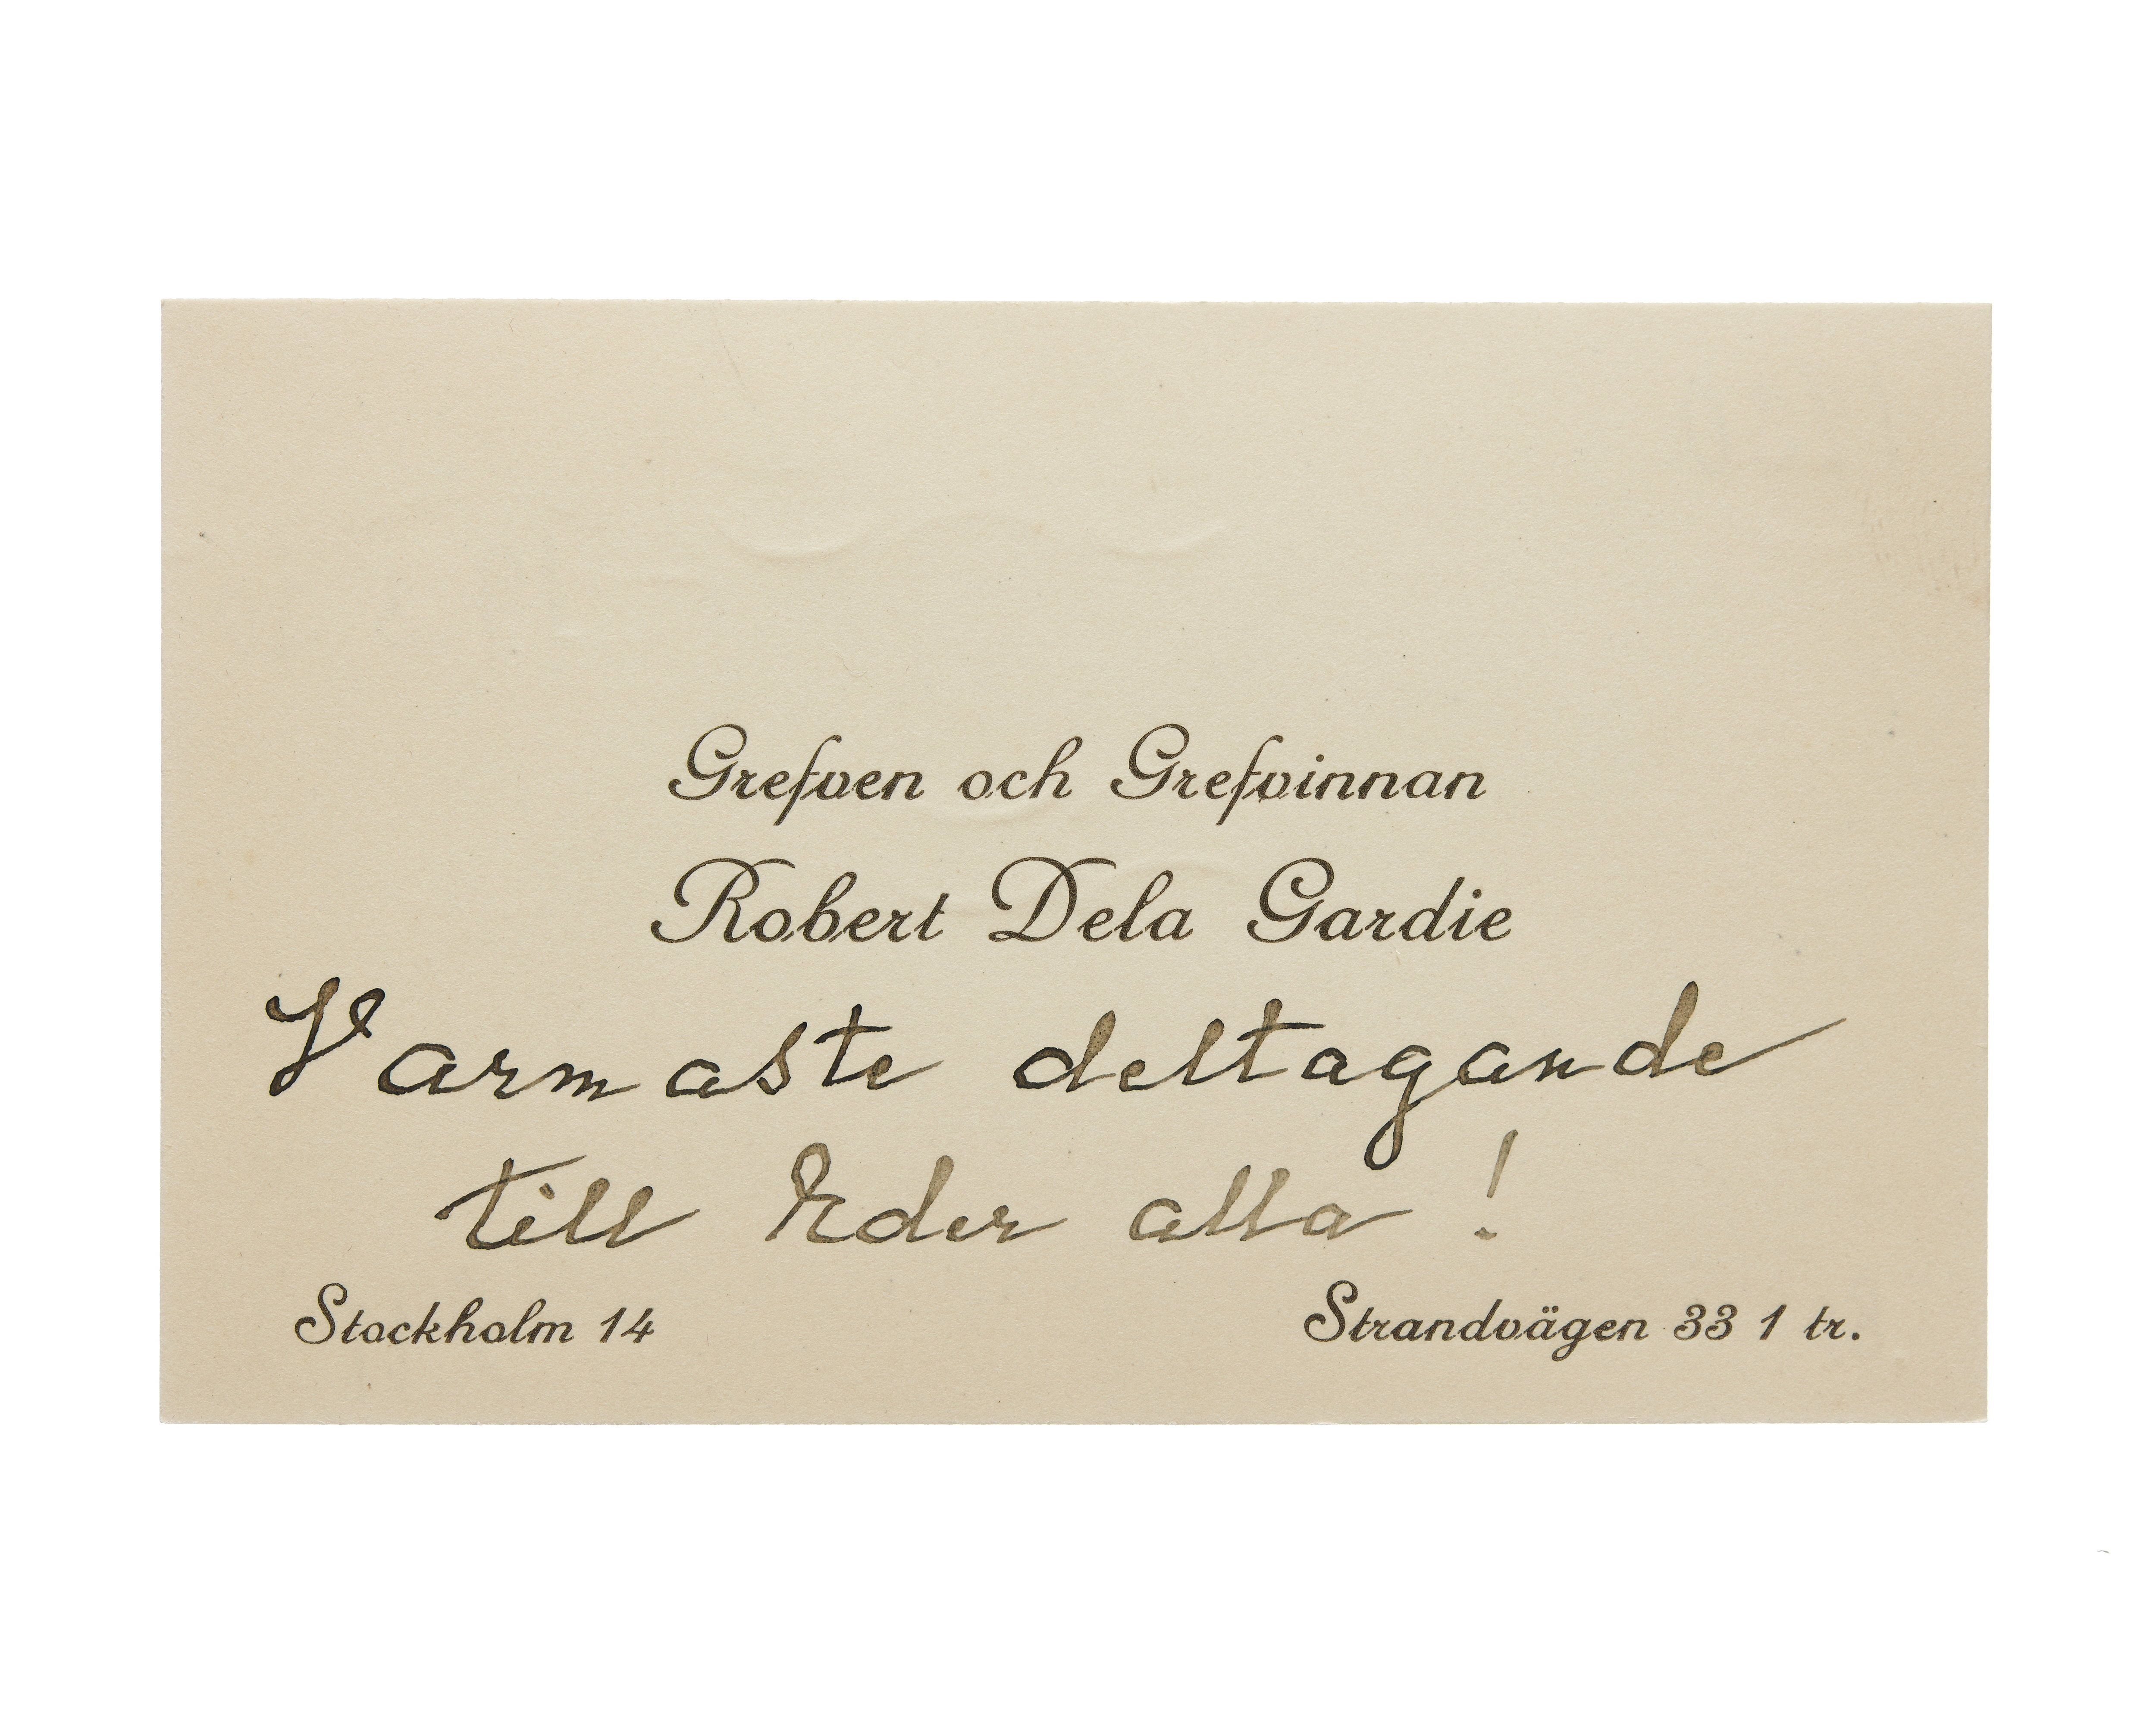 Grefven och Grefvinnan
Robert De la Gardie
Varmaste deltagande
till Eder alla !
Stockholm 14 Strandvägen 33 1 tr.